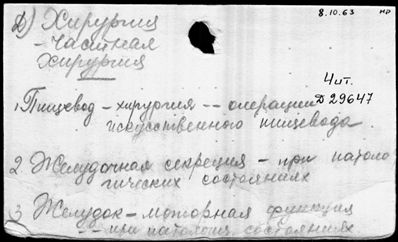 Д) Хирургия
8.10.63 НР
- частная
хирургия
4 шт.
Д 29647
1, Пищевод - хирургия -- операции
искусственного пищевода
2 Желудочная секреция - при патоло
гических состояниях
3 Желудок - моторная функция
-- при патология состояниях